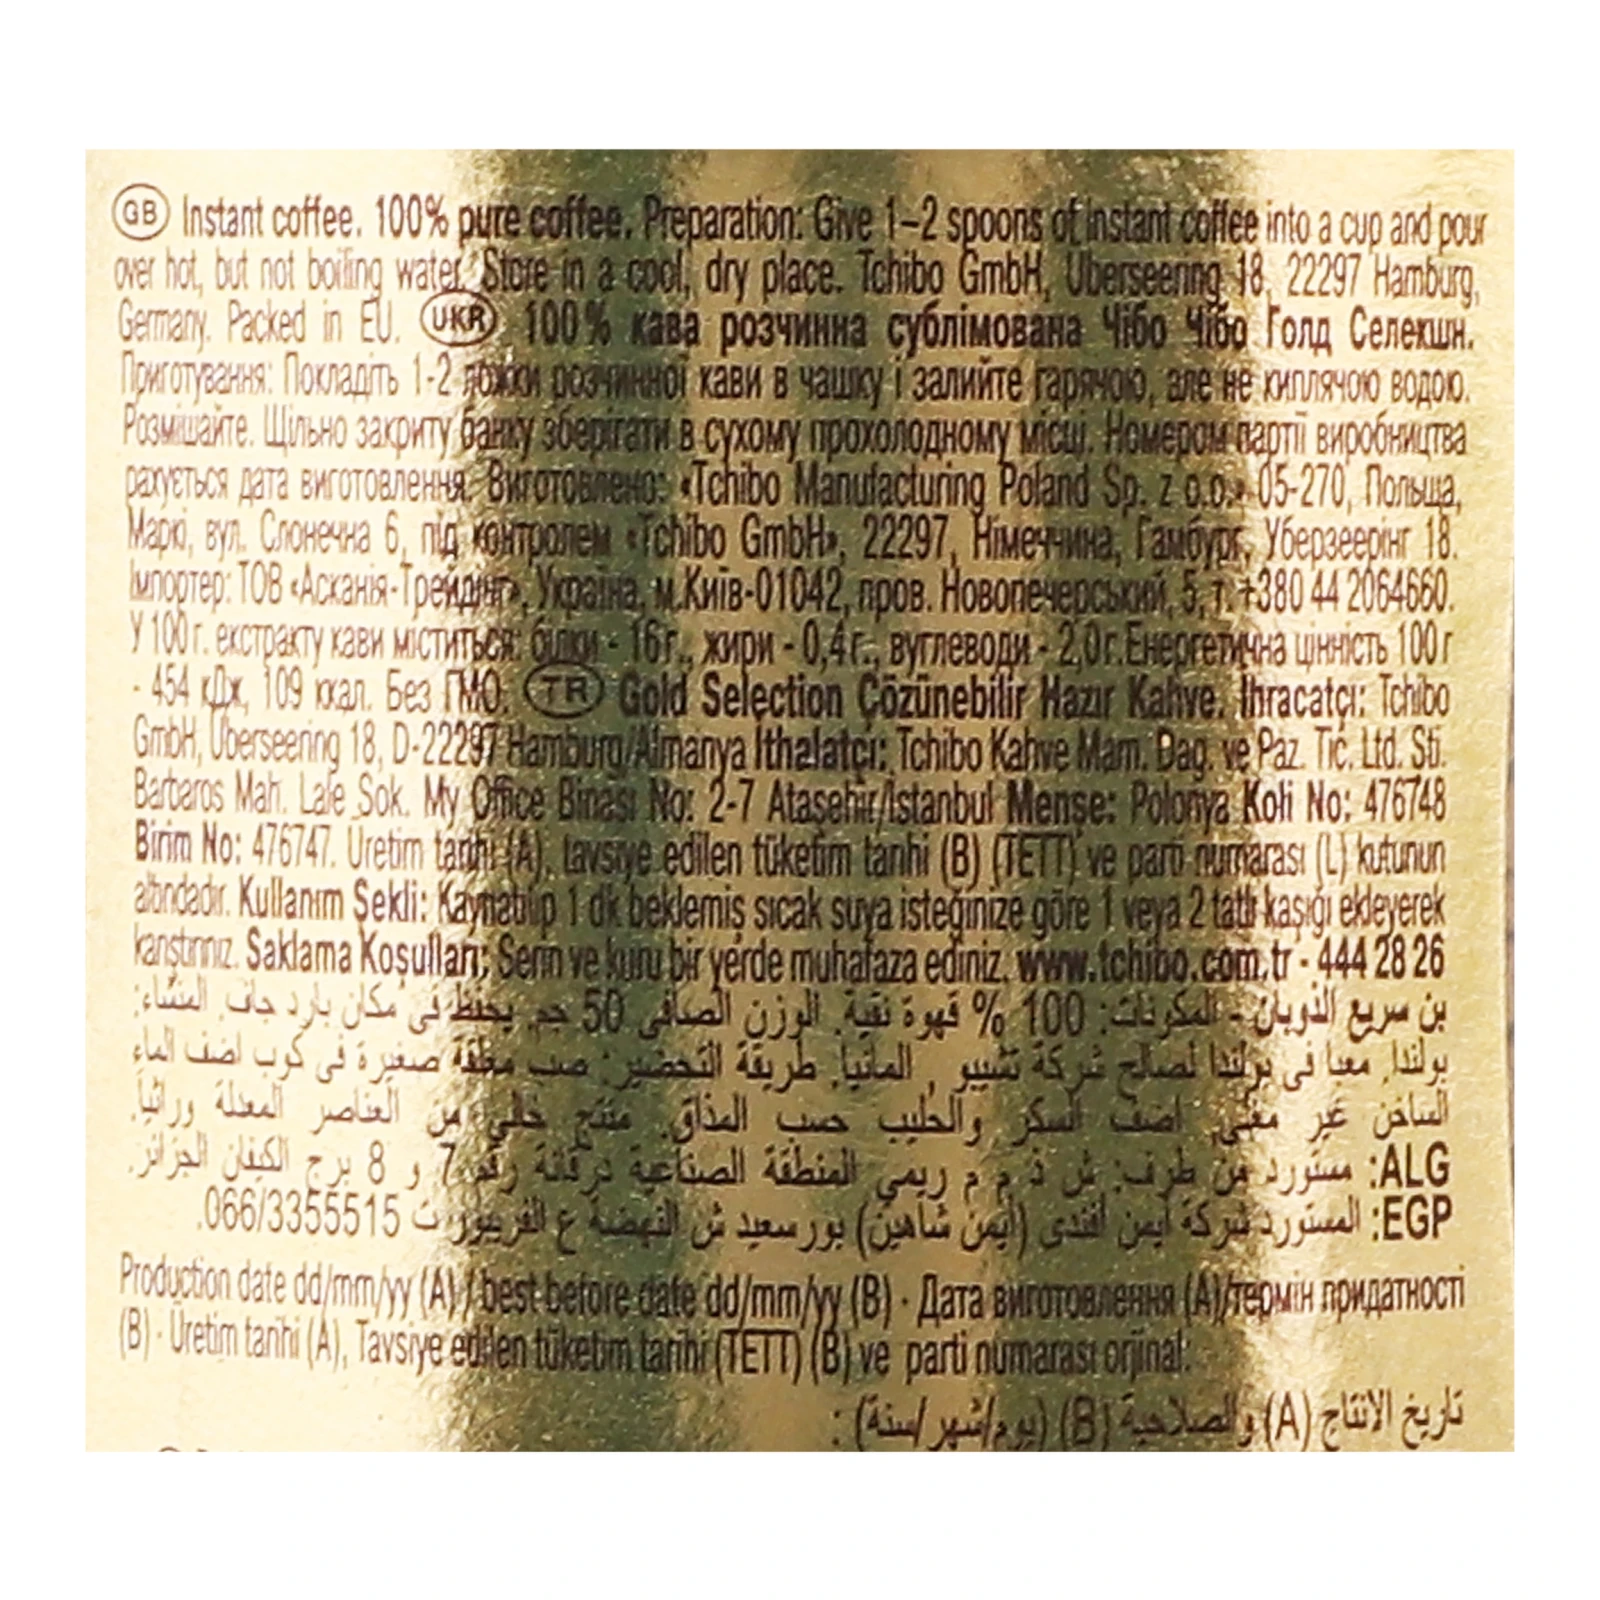 GB Instant coffee. 100% pure coffee. Preparation: Give 1–2 spoons of instant coffee into a cup and pour
over hot, but not boiling water. Store in a cool, dry place. Tchibo GmbH, Überseering 18, 22297 Hamburg,
Germany. Packed in EU. UKR 100% кава розчинна сублімована Чібо Чібо Голд Селекшн.
Приготування: Покладіть 1-2 ложки розчинної кави в чашку і залийте гарячою, але не киплячою водою.
Розмішайте. Щільно закриту банку зберігати в сухому прохолодному місці. Номером партії виробництва
рахується дата виготовлення. Виготовлено: «Tchibo Manufacturing Poland Sp. z o.o.» 05-270, Польща,
Маркі, вул. Слонечна 6, під контролем «Tchibo GmbH», 22297, Німеччина, Гамбург, Уберзеерінг 18.
Імпортер: ТОВ «Асканія-Трейдінг», Україна, м.Київ-01042, пров. Новопечерський, 5, т. +380 44 2064660.
У 100 г. екстракту кави міститься: білки - 16 г., жири - 0,4 г., вуглеводи - 2,0 г.Енергетична цінність 100 г
- 454 кДж, 109 ккал. Без ГМО. TR Gold Selection Çözünebilir Hazır Kahve. İhracatçı: Tchibo
GmbH, Überseering 18, D-22297 Hamburg/Almanya İthalatçı: Tchibo Kahve Mam. Dağ. ve Paz. Tic. Ltd. Şti.
Barbaros Mah. Lale Sok. My Office Binası No: 2-7 Ataşehir/İstanbul Menşe: Polonya Koli No: 476748
Birim No: 476747. Üretim tarihi (A), tavsiye edilen tüketim tarihi (B) (TETT) ve parti numarası (L) kutunun
altındadır. Kullanım Şekli: Kaynatılıp 1 dk beklemiş sıcak suya isteğinize göre 1 veya 2 tatlı kaşığı ekleyerek
karıştırınız. Saklama Koşulları: Serin ve kuru bir yerde muhafaza ediniz. www.tchibo.com.tr - 444 28 26
بن سريع الذوبان - المكونات: 100 % قهوة نقية. الوزن الصافى 50 جم. يحفظ فى مكان بارد جاف. المنشاء:
بولندا. معبا فى بولندا لصالح شركة تشيبو , المانيا. طريقة التحضير: صب معلقة صغيرة فى كوب اضف الماء
الساخن غير مغلى. اضف السكر والحليب حسب المذاق. منتج خالي من العناصر المعدلة وراثياً.
ALG: مستورد من طرف: ش ذ م م ريمي المنطقة الصناعية درقانة رقم 7 و 8 برج الكيفان الجزائر.
EGP: المستورد شركة ايمن افندى (ايمن شاهين) بورسعيد ش النهضة ع الفريبور ت 066/3355515.
Production date dd/mm/yy (A) / best before date dd/mm/yy (B) · Дата виготовлення (A)/термін придатності
(B) · Üretim tarihi (A), Tavsiye edilen tüketim tarihi (TETT) (B) ve parti numarası orjinal:
تاريخ الانتاج (A) والصلاحية (B) (يوم/شهر/سنة) :